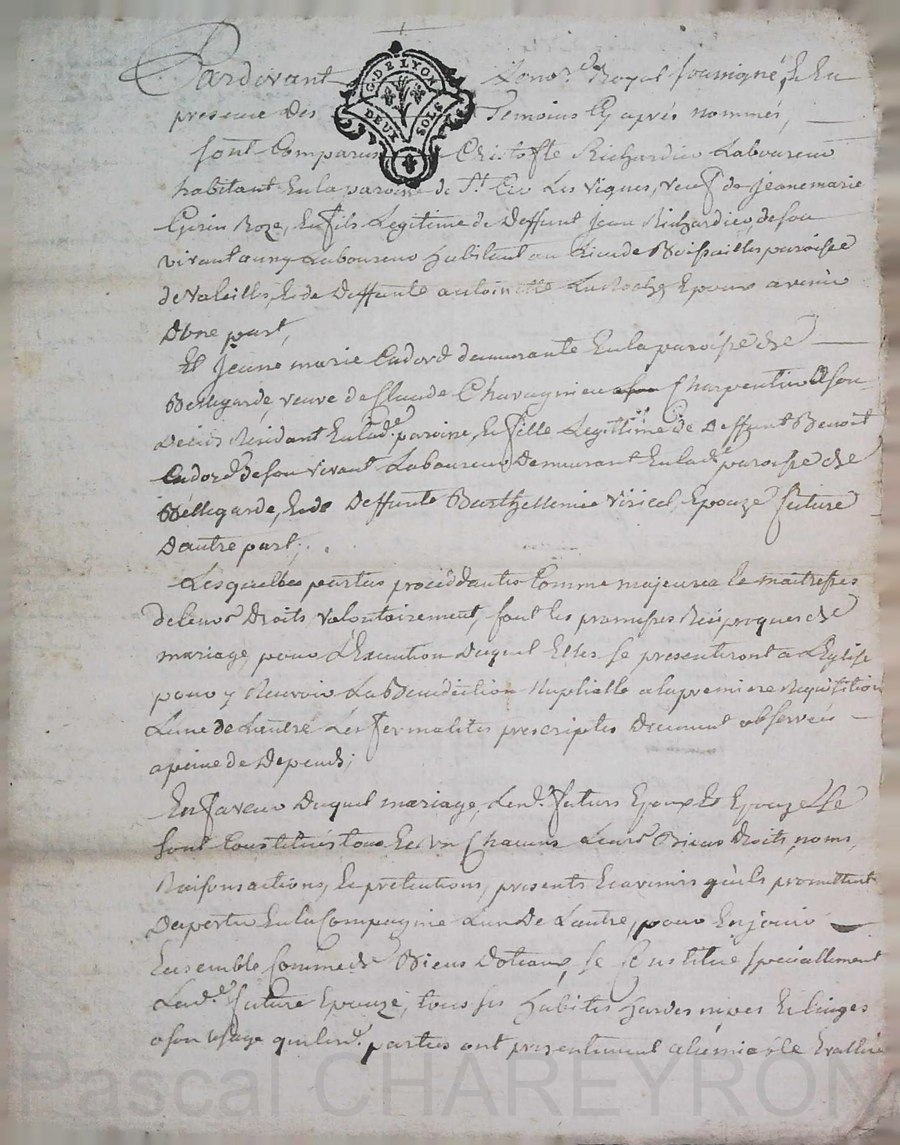 Pardevant Le no.re Royal soussigné, et En
G. DE LYON
DEUX SOLS
presence des Temoins Cy aprés nommés,
sont Comparus Christofle Richardier Laboureur
habitant En la paroisse de St. Cir Les Vignes, veuf de Jeanemarie
Roze, Et fils Legitime de deffunt Jean Richardier, de son
vivant aussy Laboureur habitant au lieu de Boissailles paroisse
de Valeille, Et de deffunte antoinette Epoux avenir
Dune part,
Et Jeane marie Cadord demeurante En la paroisse de
Bellegarde, veuve de Claude Chavagnieu Charpentier a son
Deces Residant En lad.e paroisse, Et fille Legitime de deffunt Benoit
Cadord de son vivant Laboureur Demeurant En lad.e paroisse de
Bellegarde, Et de Deffunte Barthellemie Viricel, Epouze future
Dautre part;
Lesquelles parties procédantes Comme majeures Et maitresses
de leurs Droits, volontairement, font les promesses Réciproques de
mariage, pour L'Execution duquel Elles se presenteront a L'Eglise
pour y Recevoir La Benediction Nuptialle a la premiere Requisition
Lune de Lautre Les formalités prescriptes Duement observées
a peine de Depends;
En faveur Duquel mariage, Lesd. futurs Epoux Et Epouze Se
sont Constitués tous Et Un Chacuns Leurs Biens Droits, noms,
Raisons actions, Et pretentions, presents Et avenirs qu'ils promettent
Daporter En la Compagnie Lun De Lautre, pour En jouir
Ensemble Comme de Biens dotaux, Se Constitue specialement
Lad.e future Epouze, tous ses habits hardes nipes Et linges
a son Usage que lesd. parties ont presentement
Pascal CHAREYRON